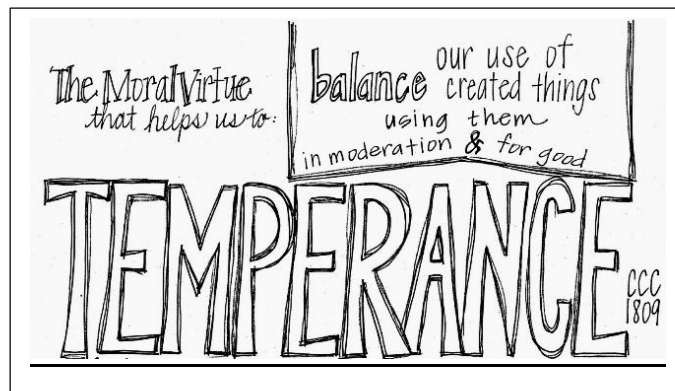 The Moral Virtue
that helps us to:
balance our use of
created things
using them
in moderation & for good
TEMPERANCE
CCC
1809